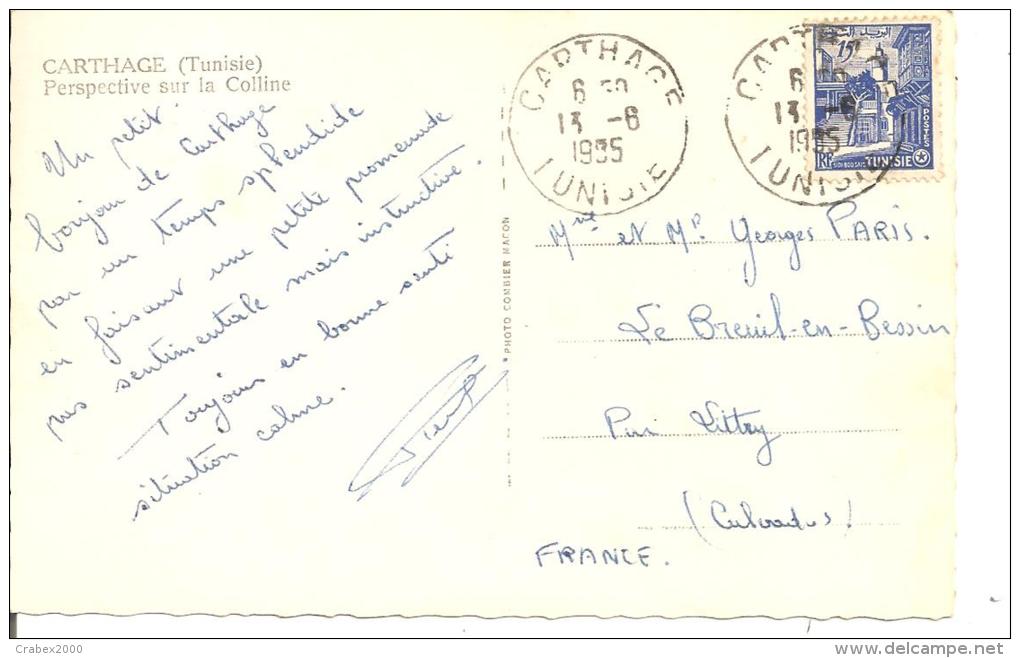 CARTHAGE (Tunisie)
Perspective sur la Colline
Un petit
bonjour de Carthage
par un temps splendide
en faisant une petite promenade
pas sentimentale mais instructive.
Toujours en bonne santé
situation calme.
* PHOTO COMBIER MACON
CARTHAGE
13 -6
1955
TUNISIE
13 -6
1955
TUNISIE
15F
POSTES
RF
SIDI BOU SAID
TUNISIE
Mme et Mr Georges PARIS.
Le Breuil-en-Bessin
Par Littry
(Calvados)
FRANCE.
Crabex2000